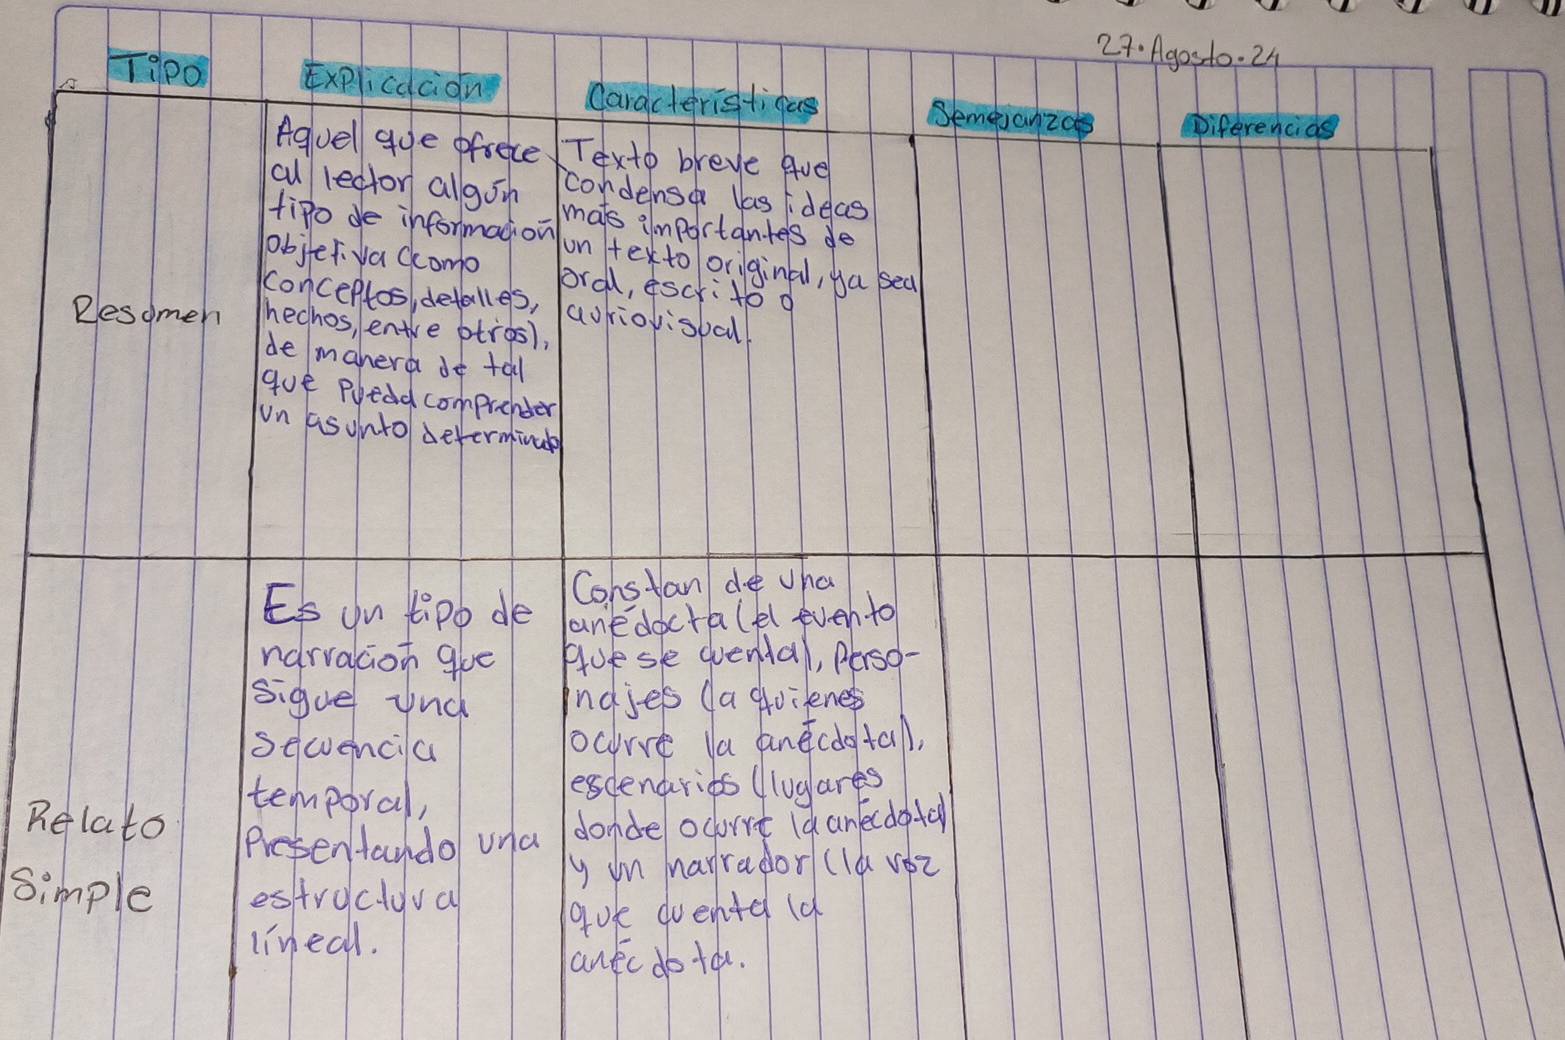 27·Agosto·24
Tipo
Explicación
Características
Semejanzas
Diferencias
Resumen
Aquel que ofrece
al lector algún
tipo de información
objetiva (como
conceptos, detalles,
hechos, entre otros),
de manera de tal
que pueda comprender
un asunto determinado
Texto breve que
condensa las ideas
más importantes de
un texto original, ya sea
oral, escrito o
auriovisual.
Relato
Simple
Es un tipo de
narración que
sigue una
secuencia
temporal,
Presentando una
estructura
líneal.
Constan de una
anédocta (el evento
que se cuenta), perso-
najes (a quienes
ocurre la anécdota),
escenarios (lugares
donde ocurre la anécdota)
y un narrador (la voz
que cuenta la
anécdota.